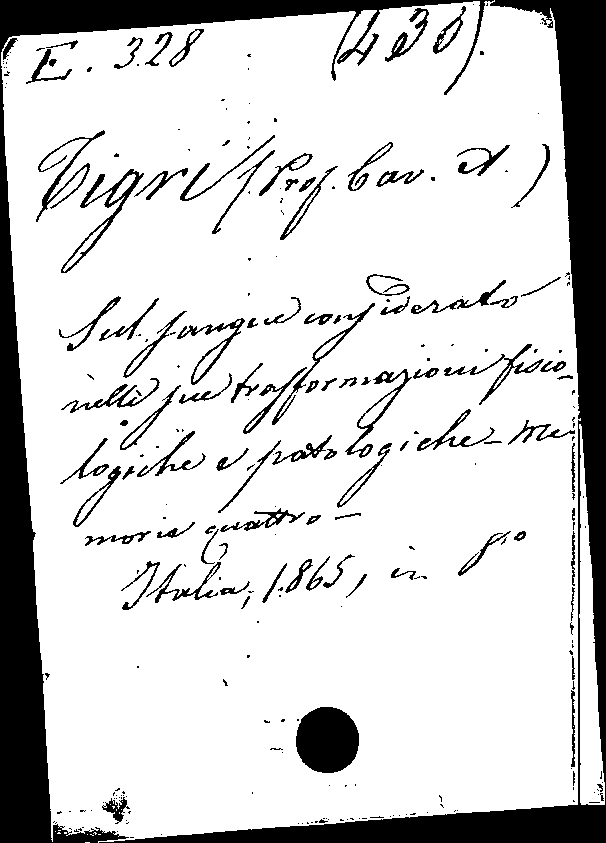 E. 328 (430).
Tigri (Prof. Cav. A.)
Sul sangue considerato
nelle sue trasformazioni fisio-
logiche e patologiche - Me-
morie quattro -
Italia, 1865, in 8º